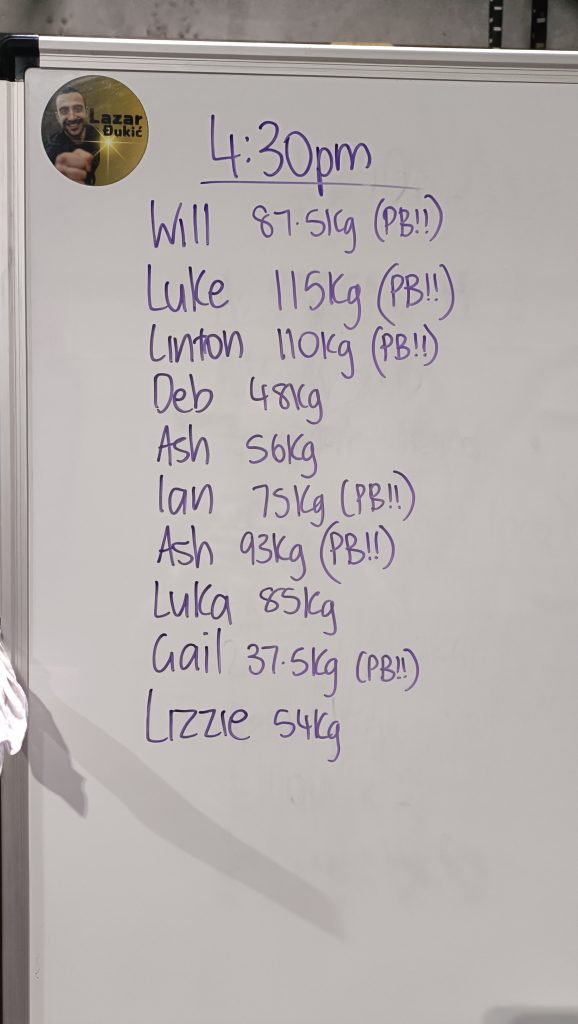 Lazar
Đukić
4:30pm
Will 87.5Kg (PB!!)
Luke 115Kg (PB!!)
Linton 110Kg (PB!!)
Deb 48Kg
Ash 56Kg
Ian 75Kg (PB!!)
Ash 93Kg (PB!!)
Luka 85Kg
Gail 37.5Kg (PB!!)
Lizzie 54Kg